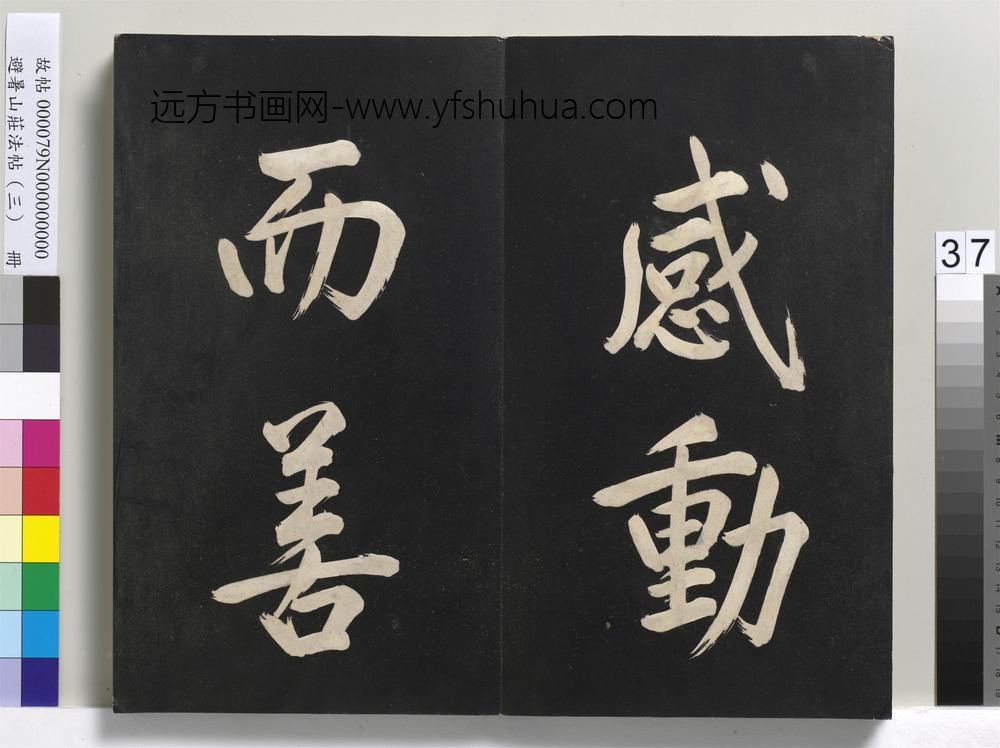 远方书画网-www.yfshuhua.com
感動
而善
故帖 000079N000000000
避暑山莊法帖（三） 冊
37